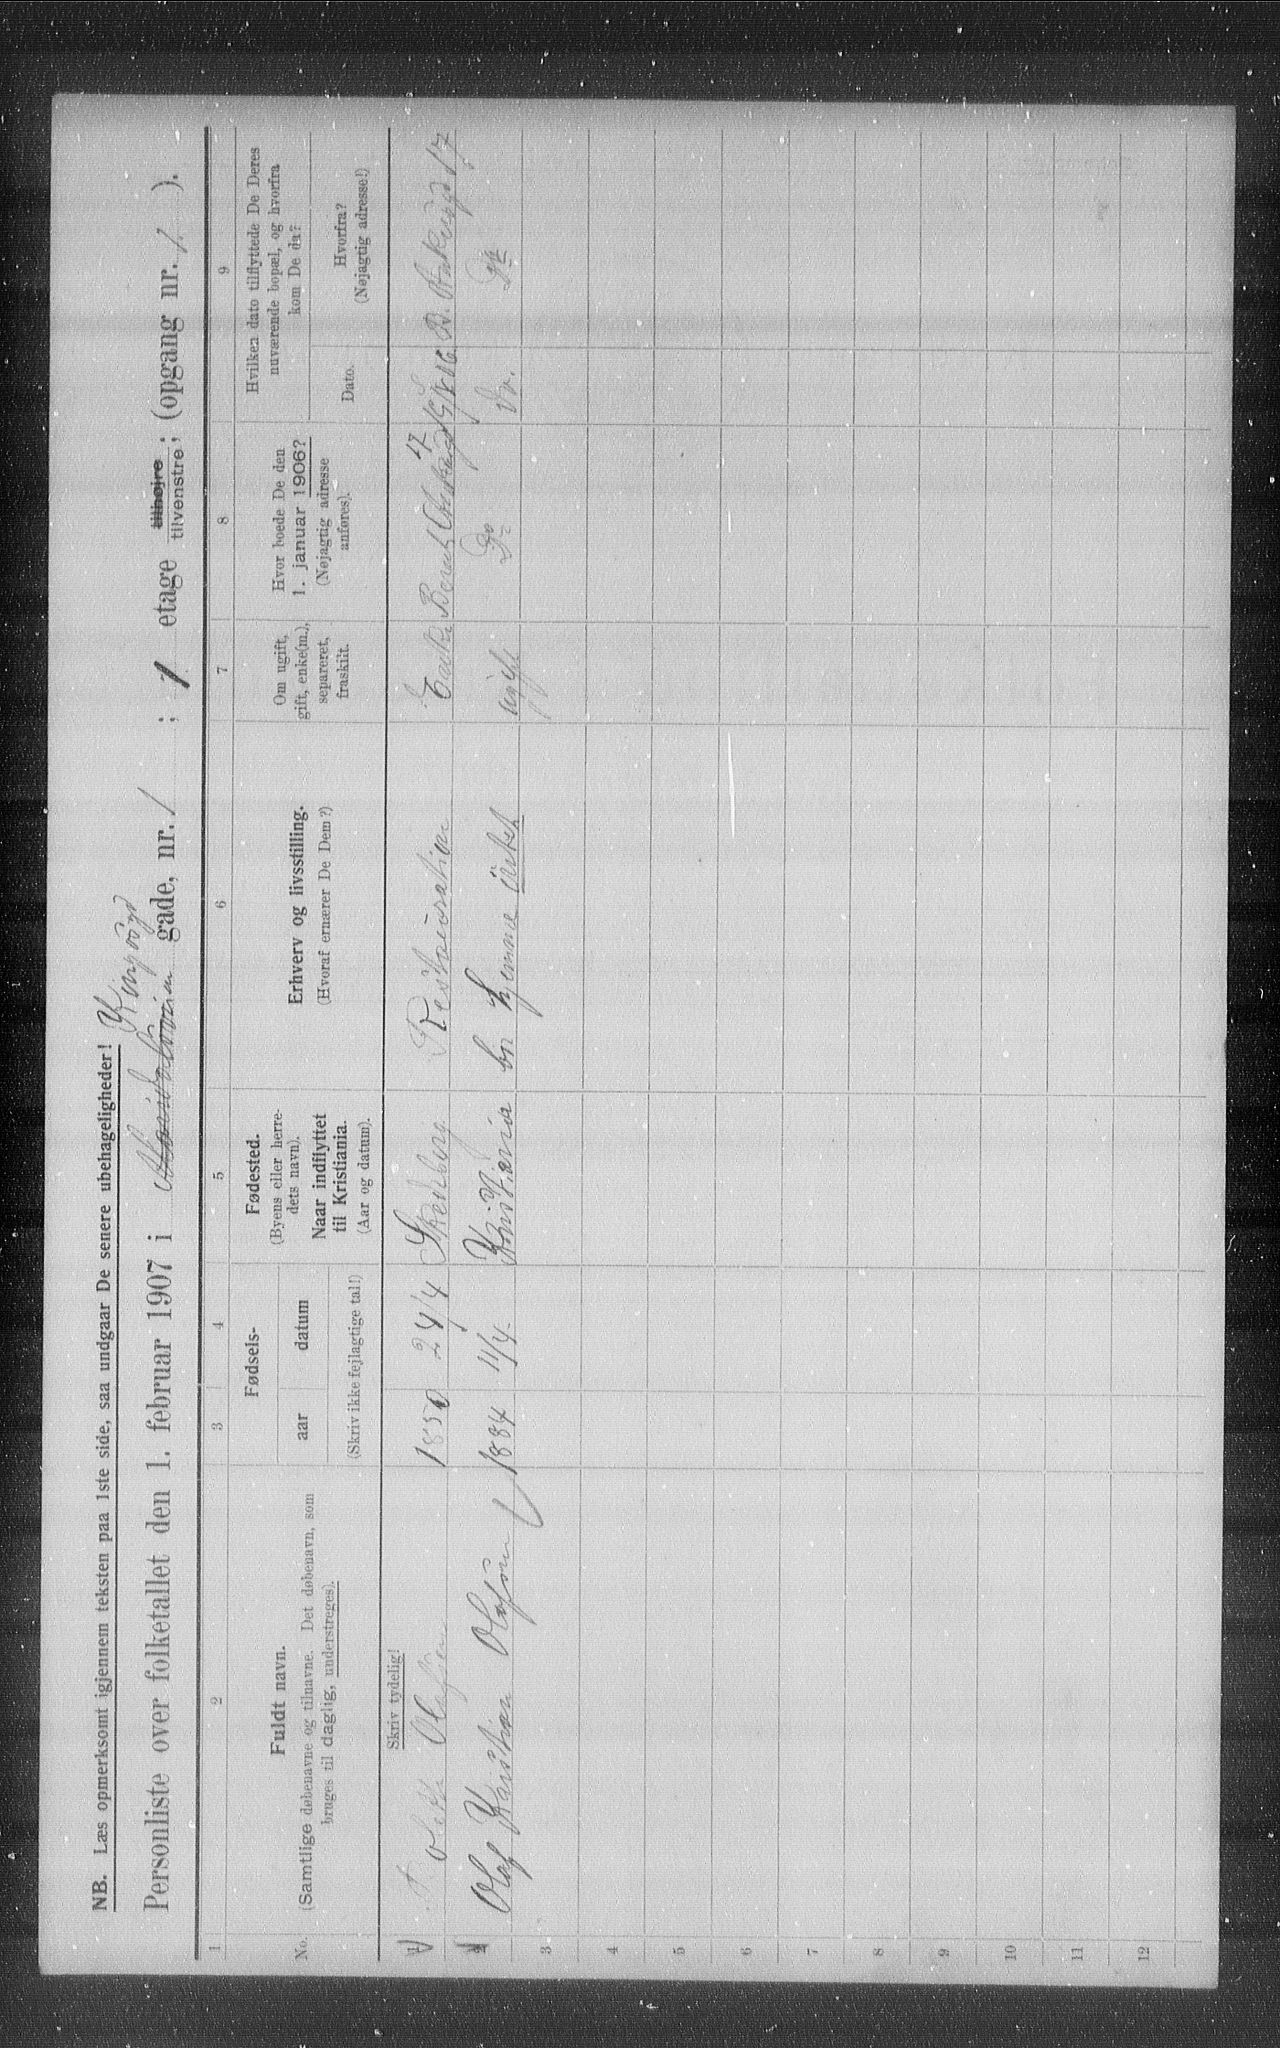 NB. Læs opmerksomt igjennem teksten paa 1ste side, saa undgaar De senere ubehageligheder!
Personliste over folketallet den 1. februar 1907 i gade, nr. 1 ; 1 etage tilhøjre tilvenstre; (opgang nr. 1. ).
1 2 3 4 5 6 7 8 9
No.
Fuldt navn.
(Samtlige døbenavne og tilnavne. Det døbenavn, som
bruges til daglig, understreges).
Skriv tydelig!
Fødsels-
aar datum
(Skriv ikke fejlagtige tal!)
Fødested.
(Byens eller herre-
dets navn).
Naar indflyttet
til Kristiania.
(Aar og datum).
Erhverv og livsstilling.
(Hvoraf ernærer De Dem?)
Om ugift,
gift, enke(m.),
separeret,
fraskilt.
Hvor boede De den
1. januar 1906?
(Nøjagtig adresse
anføres).
Hvilken dato tilflyttede De Deres
nuværende bopæl, og hvorfra
kom De da?
Dato.
Hvorfra?
(Nøjagtig adresse!)
1 Olafsen 1850 24/4 Restauration Enke 17
2 Olaf Kristian Olafsen 1884 11/4 Kristiania bor hjemme ugift Do Do. Do
3
4
5
6
7
8
9
10
11
12